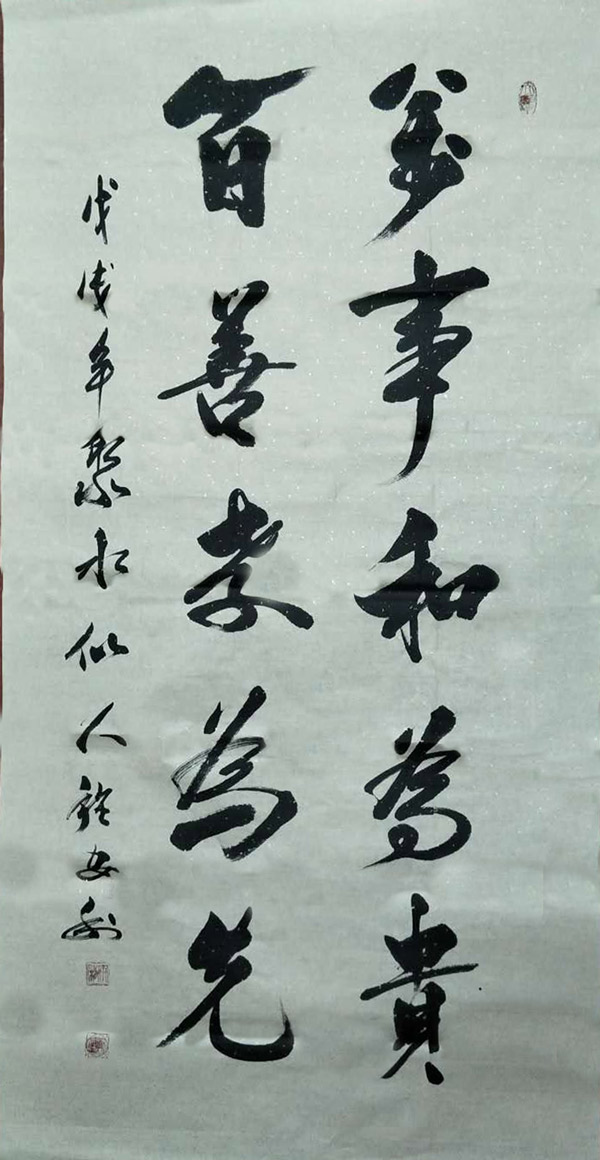 萬事和為貴
百善孝為先
戊戌年聚水似人